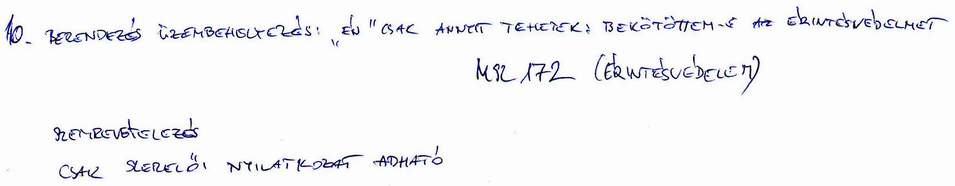 10. BERENDEZÉS ÜZEMBEHELYEZÉS: „ÉN" CSAK ANNYIT TEHETEK: BEKÖTÖTTEM-E AZ ÉRINTÉSVÉDELMET
MSZ 172 (ÉRINTÉSVÉDELEM)
SZEMREVÉTELEZÉS
CSAK SZERELŐI NYILATKOZAT ADHATÓ